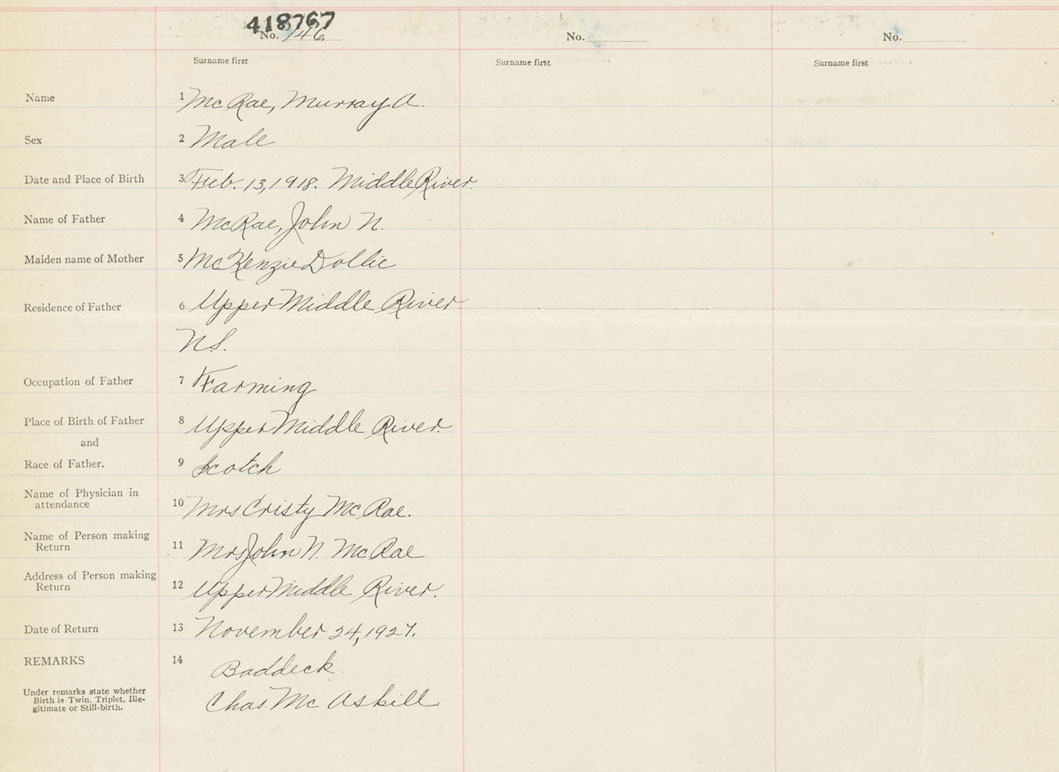 418767
No. 146 No. No.
Surname first Surname first Surname first
Name 1 McRae, Murray A.
Sex 2 Male
Date and Place of Birth 3 Feb. 13, 1918. Middle River
Name of Father 4 McRae, John N.
Maiden name of Mother 5 McKenzie Dollie
Residence of Father 6 Upper Middle River
N.S.
Occupation of Father 7 Farming
Place of Birth of Father 8 Upper Middle River.
and
Race of Father. 9 Scotch
Name of Physician in
attendance 10 Mrs Cristy McRae.
Name of Person making
Return 11 Mrs John N. McRae
Address of Person making
Return 12 Upper Middle River.
Date of Return 13 November 24, 1927.
REMARKS 14 Baddeck
Under remarks state whether
Birth is Twin, Triplet, Ille-
gitimate or Still-birth.
Chas. McAskill